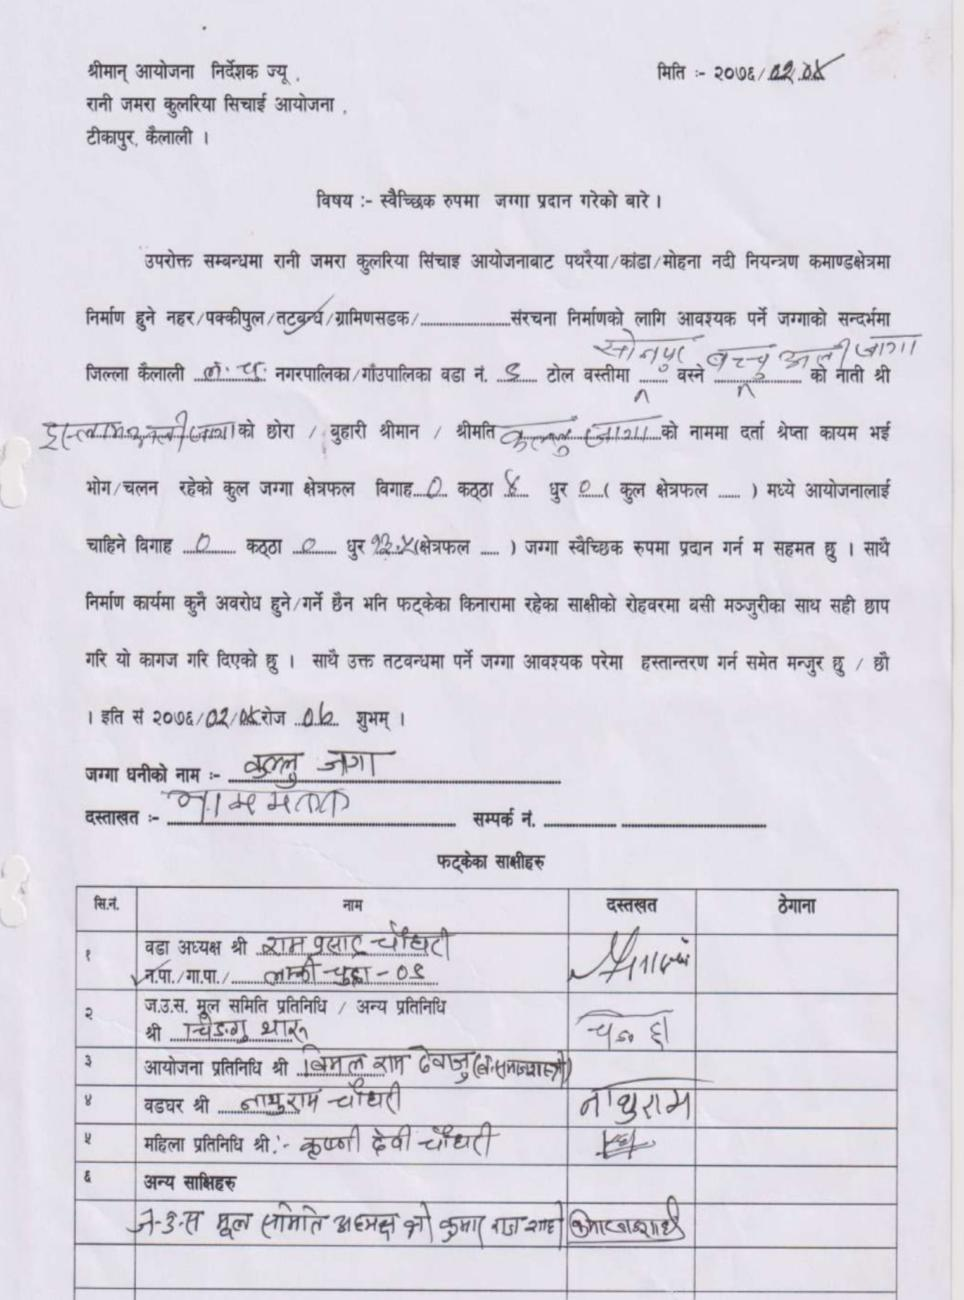 श्रीमान् आयोजना निर्देशक ज्यू , मिति :- २०७६/०२/०४
रानी जमरा कुलरिया सिचाई आयोजना ,
टीकापुर, कैलाली ।
विषय :- स्वैच्छिक रुपमा जग्गा प्रदान गरेको बारे ।
उपरोक्त सम्बन्धमा रानी जमरा कुलरिया सिंचाइ आयोजनाबाट पथरैया/कांडा/मोहना नदी नियन्त्रण कमाण्डक्षेत्रमा
निर्माण हुने नहर/पक्कीपुल/तटबन्ध/ग्रामिणसडक/......................संरचना निर्माणको लागि आवश्यक पर्ने जग्गाको सन्दर्भमा
सोनपुर बच्चु अली जागा
जिल्ला कैलाली ल. चु. नगरपालिका/गाँउपालिका वडा नं. ९ टोल वस्तीमा ....... वस्ने .................. को नाती श्री
को छोरा / बुहारी श्रीमान / श्रीमति कल्लु जागा को नाममा दर्ता श्रेप्ता कायम भई
भोग/चलन रहेको कुल जग्गा क्षेत्रफल विगाह ० कठ्ठा ४ धुर ० ( कुल क्षेत्रफल ...... ) मध्ये आयोजनालाई
चाहिने विगाह ० कठ्ठा ० धुर (क्षेत्रफल ..... ) जग्गा स्वैच्छिक रुपमा प्रदान गर्न म सहमत छु । साथै
निर्माण कार्यमा कुनै अवरोध हुने/गर्ने छैन भनि फट्केका किनारामा रहेका साक्षीको रोहवरमा वसी मञ्जुरीका साथ सही छाप
गरि यो कागज गरि दिएको छु । साथै उक्त तटवन्धमा पर्ने जग्गा आवश्यक परेमा हस्तान्तरण गर्न समेत मन्जुर छु / छौ
। इति सं २०७६/०२/०४ रोज ०७ शुभम् ।
जग्गा धनीको नाम :- कुल्लु जागा
दस्ताखत :- सम्पर्क नं. ................ .........................
फट्केका साक्षीहरु
सि.नं. नाम दस्तखत ठेगाना
१ वडा अध्यक्ष श्री राम प्रसाद चौधरी
न.पा./गा.पा./ लम्की-चुहा - ०९
२ ज.उ.स. मूल समिति प्रतिनिधि / अन्य प्रतिनिधि
श्री चिङगु थारु
३ आयोजना प्रतिनिधि श्री विमल राम देवाजु
४ वडघर श्री नाथुराम चौधरी नाथुराम
५ महिला प्रतिनिधि श्री :- कृष्णी देवी चौधरी
६ अन्य साक्षिहरु
ज-उ-स मूल समिति अध्यक्ष श्री कुमार राज शाही